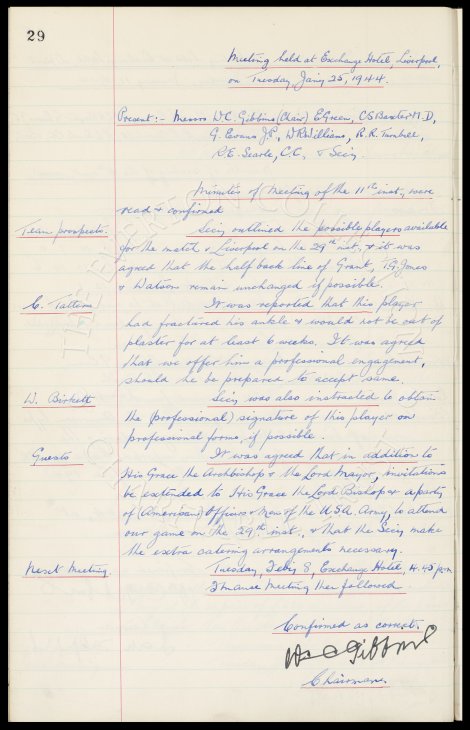 29
Meeting held at Exchange Hotel, Liverpool,
on Tuesday Jany 25, 1944.
Present:- Messrs W.C. Gibbins (Chair) E Green, C S Baxter M.D,
G. Evans J.P., W R Williams, R.R. Turnbull,
R.E. Searle, C.C, & Secy.
Minutes of meeting of the 11th inst, were
read & confirmed
Team prospects. Secy outlined the possible players available
for the match v Liverpool on the 29th inst, & it was
agreed that the half back line of Grant, T.G. Jones
& Watson remain unchanged if possible.
It was reported that this player
had fractured his ankle & would not be out of
plaster for at least 6 weeks. It was agreed
that we offer him a professional engagement,
should he be prepared to accept same.
W. Birkett Secy was also instructed to obtain
the (professional) signature of this player on
professional forms, if possible.
Guests It was agreed that in addition to
His Grace the Archbishop & the Lord Mayor, invitations
be extended to His Grace the Lord Bishop & a party
of (American) officers & men of the U.S.A. Army, to attend
our game on the 29th inst., & that the Secy make
the extra catering arrangements necessary.
Next Meeting. Tuesday, Feby 8, Exchange Hotel, 4.45 p.m.
Finance Meeting then followed
Confirmed as correct.
W C Gibbins
Chairman